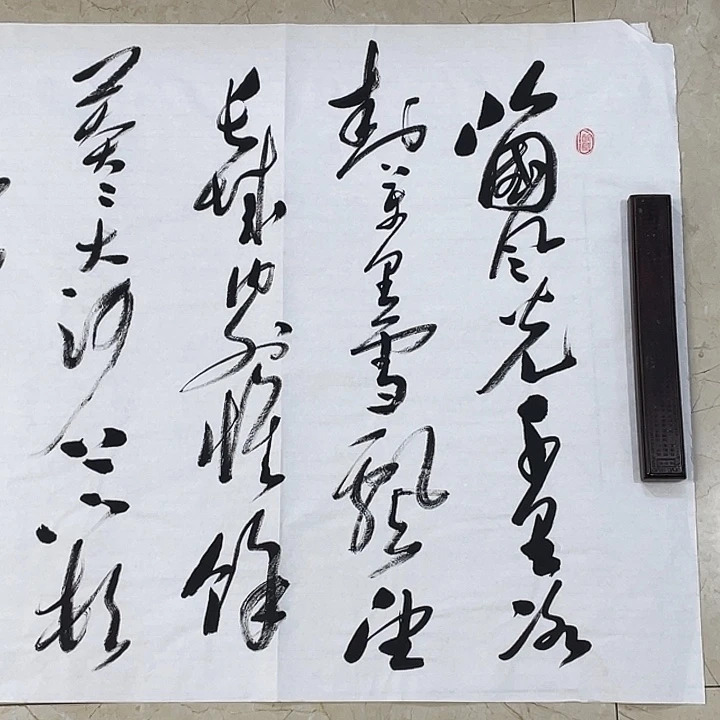 北國風光千里冰
封萬里雪飄望
長城内外惟餘
莽々大河上下頓